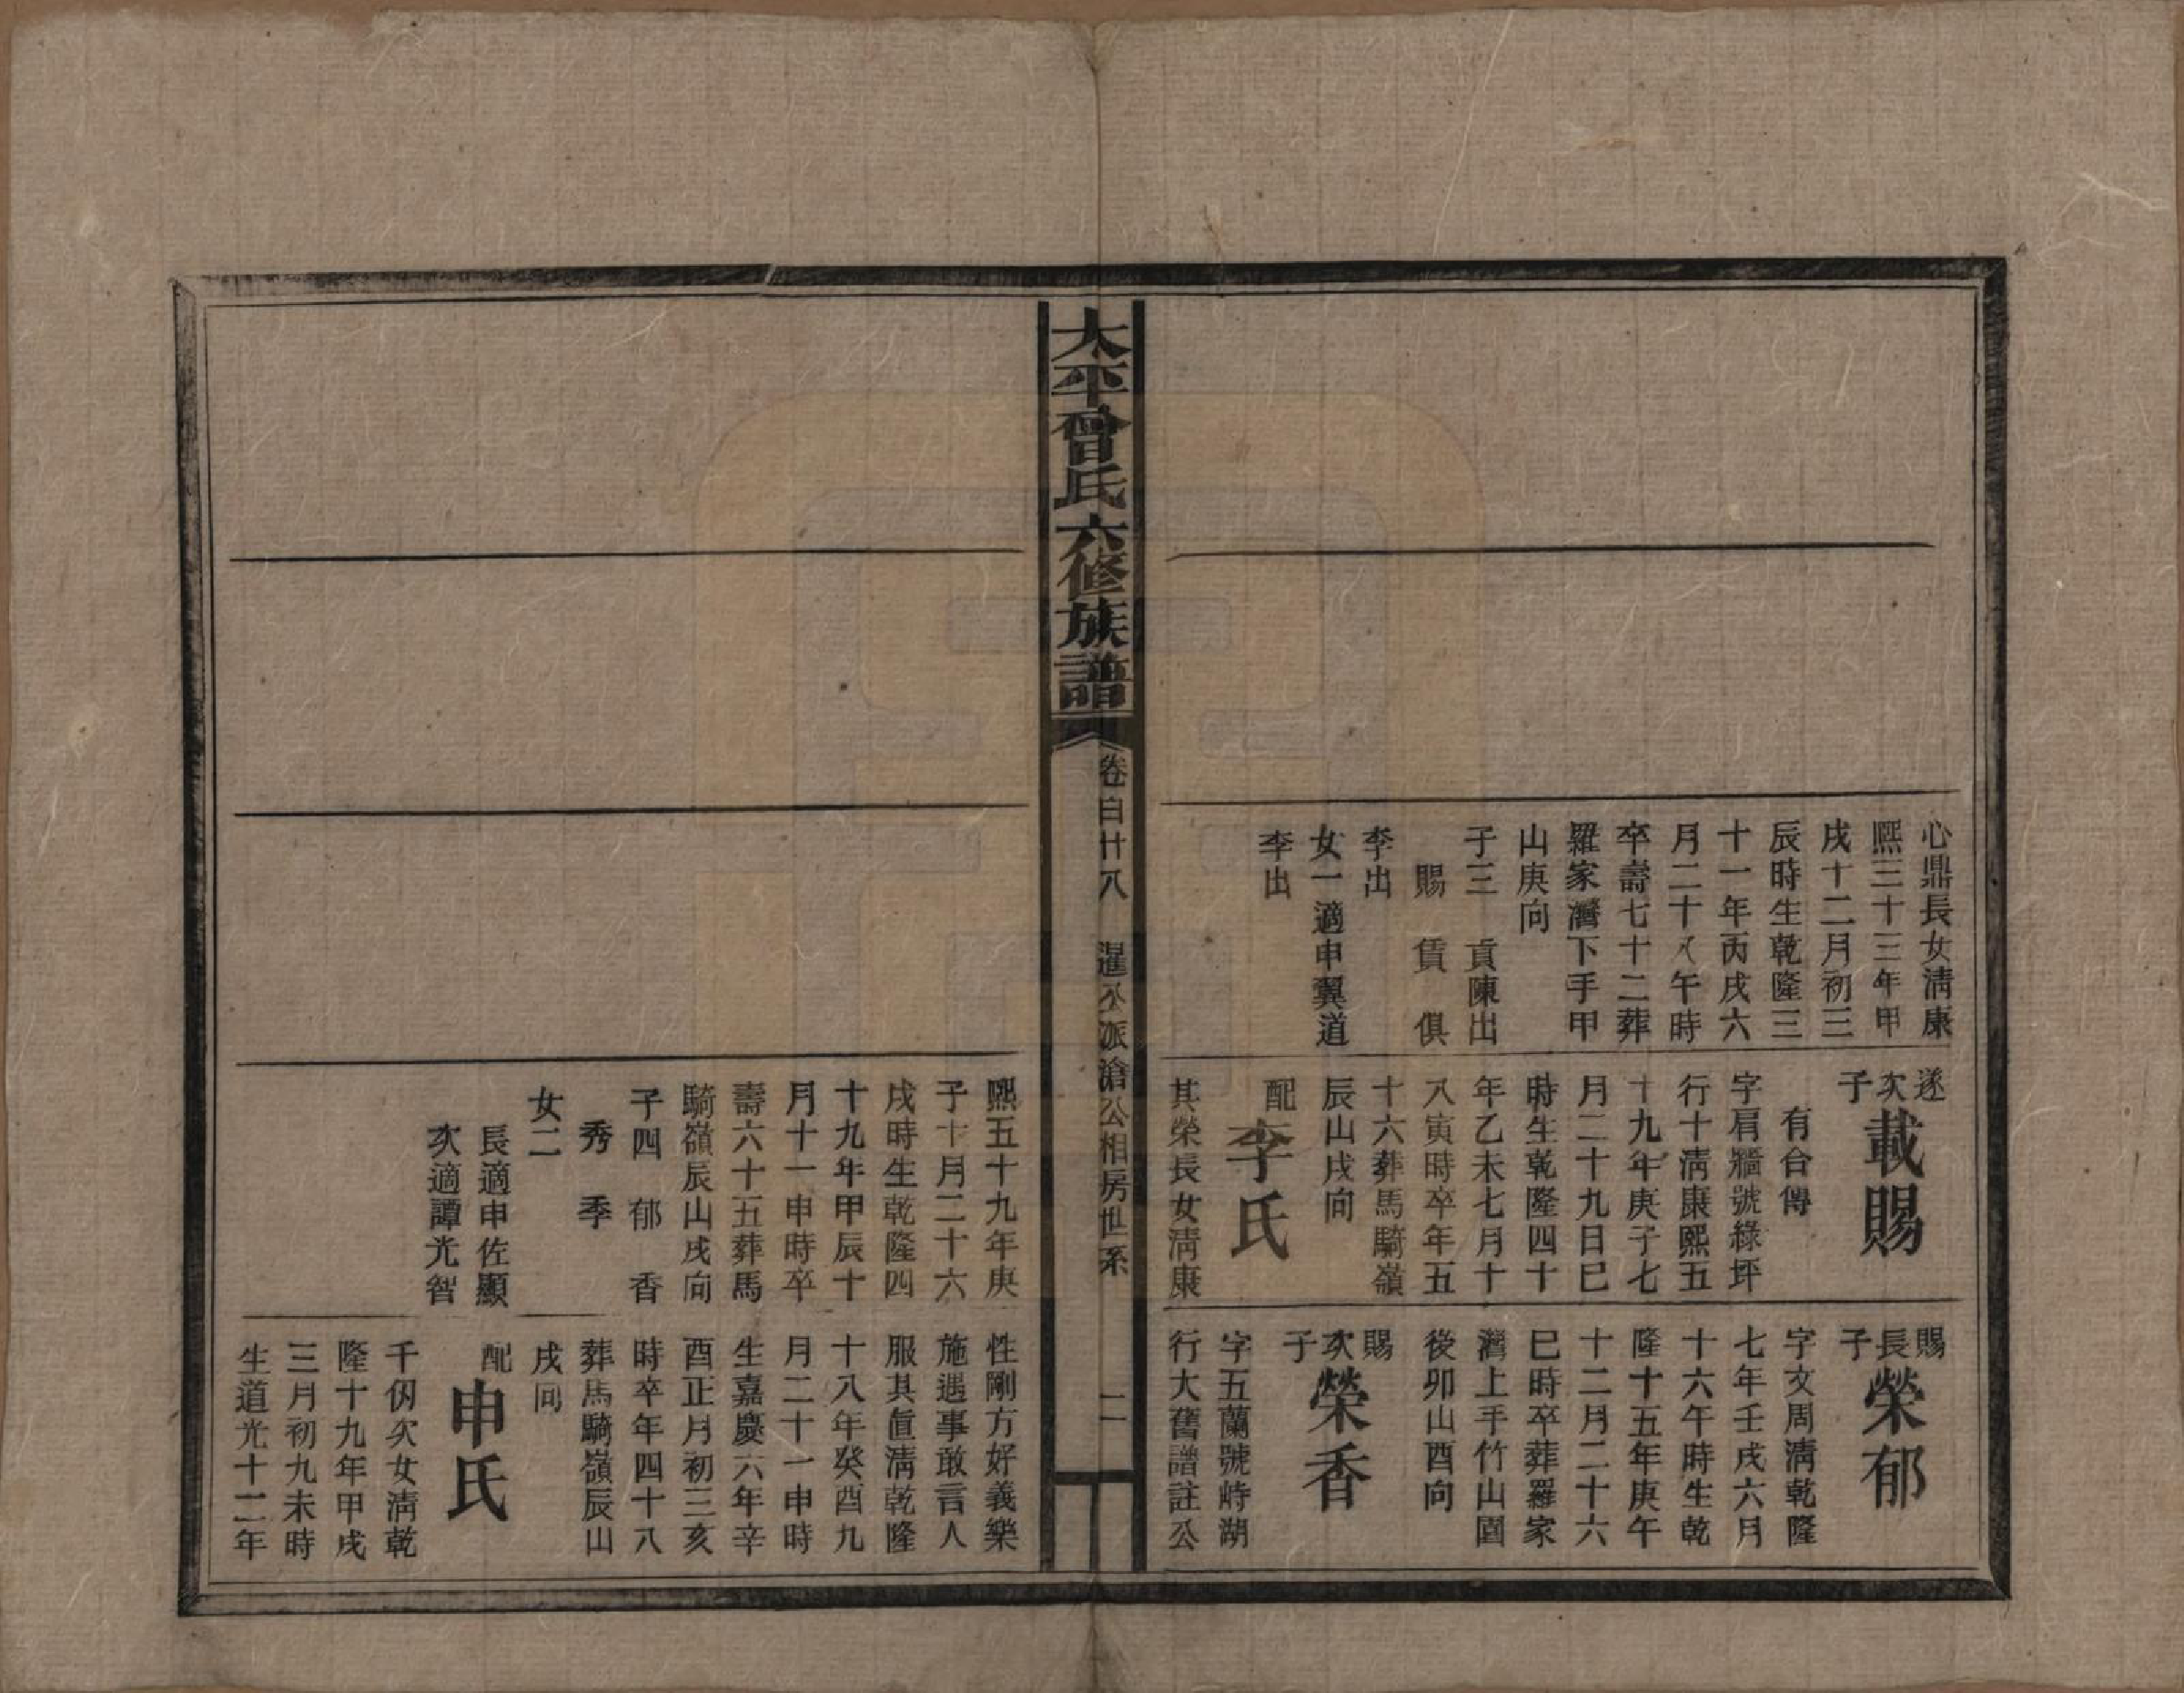 心鼎長女清康
熙三十三年甲
戌十二月初三
辰時生乾隆三
十一年丙戌六
月二十八午時
卒壽七十二葬
羅家灣下手甲
山庚向
子三　貢陳出
賜　賃　俱
李出
女一適申翼道
李出
遂次子載賜
有合傳
字肩牆號綠坪
行十清康熙五
十九年庚子七
月二十九日巳
時生乾隆四十
年乙未七月十
八寅時卒年五
十六葬馬騎嶺
辰山戌向
配李氏
其榮長女清康
賜長子榮郁
字文周清乾隆
七年壬戌六月
十六午時生乾
隆十五年庚午
十二月二十六
巳時卒葬羅家
灣上手竹山園
後卯山酉向
賜次子榮香
字五蘭號峙湖
行大舊譜註公
太平曾氏六修族譜
卷百廿八　暹公派滄公相房世系
二
熙五十九年庚
子十月二十六
戌時生乾隆四
十九年甲辰十
月十一申時卒
壽六十五葬馬
騎嶺辰山戌向
子四　郁　香
秀　季
女二
長適申佐顯
次適譚光智
性剛方好義樂
施遇事敢言人
服其直清乾隆
十八年癸酉九
月二十一申時
生嘉慶六年辛
酉正月初三亥
時卒年四十八
葬馬騎嶺辰山
戌向
配申氏
千仞次女清乾
隆十九年甲戌
三月初九未時
生道光十二年